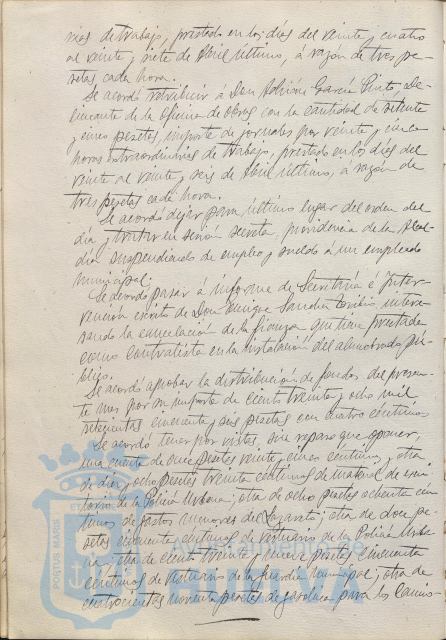 ras de trabajo, prestado en los días del veinte y cuatro
al veinte y siete de Abril último, á razón de tres pe-
setas cada hora.
Se acordó retribuir á Don Adrián García Pinto, De-
lineante de la Oficina de Obras con la cantidad de setenta
y cinco pesetas importe de jornales por veinte y cinco
horas extraordinarias de trabajo, prestado en los días del
veinte al veinte y seis de Abril último, á razón de
tres pesetas cada hora.
Se acordó dejar para último lugar del orden del
día y tratar en sesión secreta, providencia de la Alcal-
día suspendiendo de empleo y sueldo á un empleado
municipal.
Se acordó pasar á informe de Secretaría é Inter-
vención escrito de Don Enrique Sanchez Toribio intere-
sando la cancelación de la fianza que tiene prestada
como Contratista en la instalación del alumbrado pú-
blico.
Se acordó aprobar la distribución de fondos del presen-
te mes por un importe de ciento treinta y ocho mil
setecientas cincuenta y seis pesetas con cuatro centimos.
Se acordó tener por vistas, sin reparo que oponer,
una cuenta de once pesetas veinte y cinco centimos; otra
de diez y ocho pesetas treinta centimos de material de escri-
torio de la Policía Urbana; otra de ocho pesetas ochenta cen-
timos de gastos menores de Lazareto; otra de doce pe-
setas cincuenta centimos de vestuario de la Policía Urba-
na; otra de ciento treinta y cinco pesetas cincuenta
centimos de vestuario de la Guardia Municipal; otra de
cuatrocientas noventa pesetas de gasolina para los camio-
PORTUS MARIS